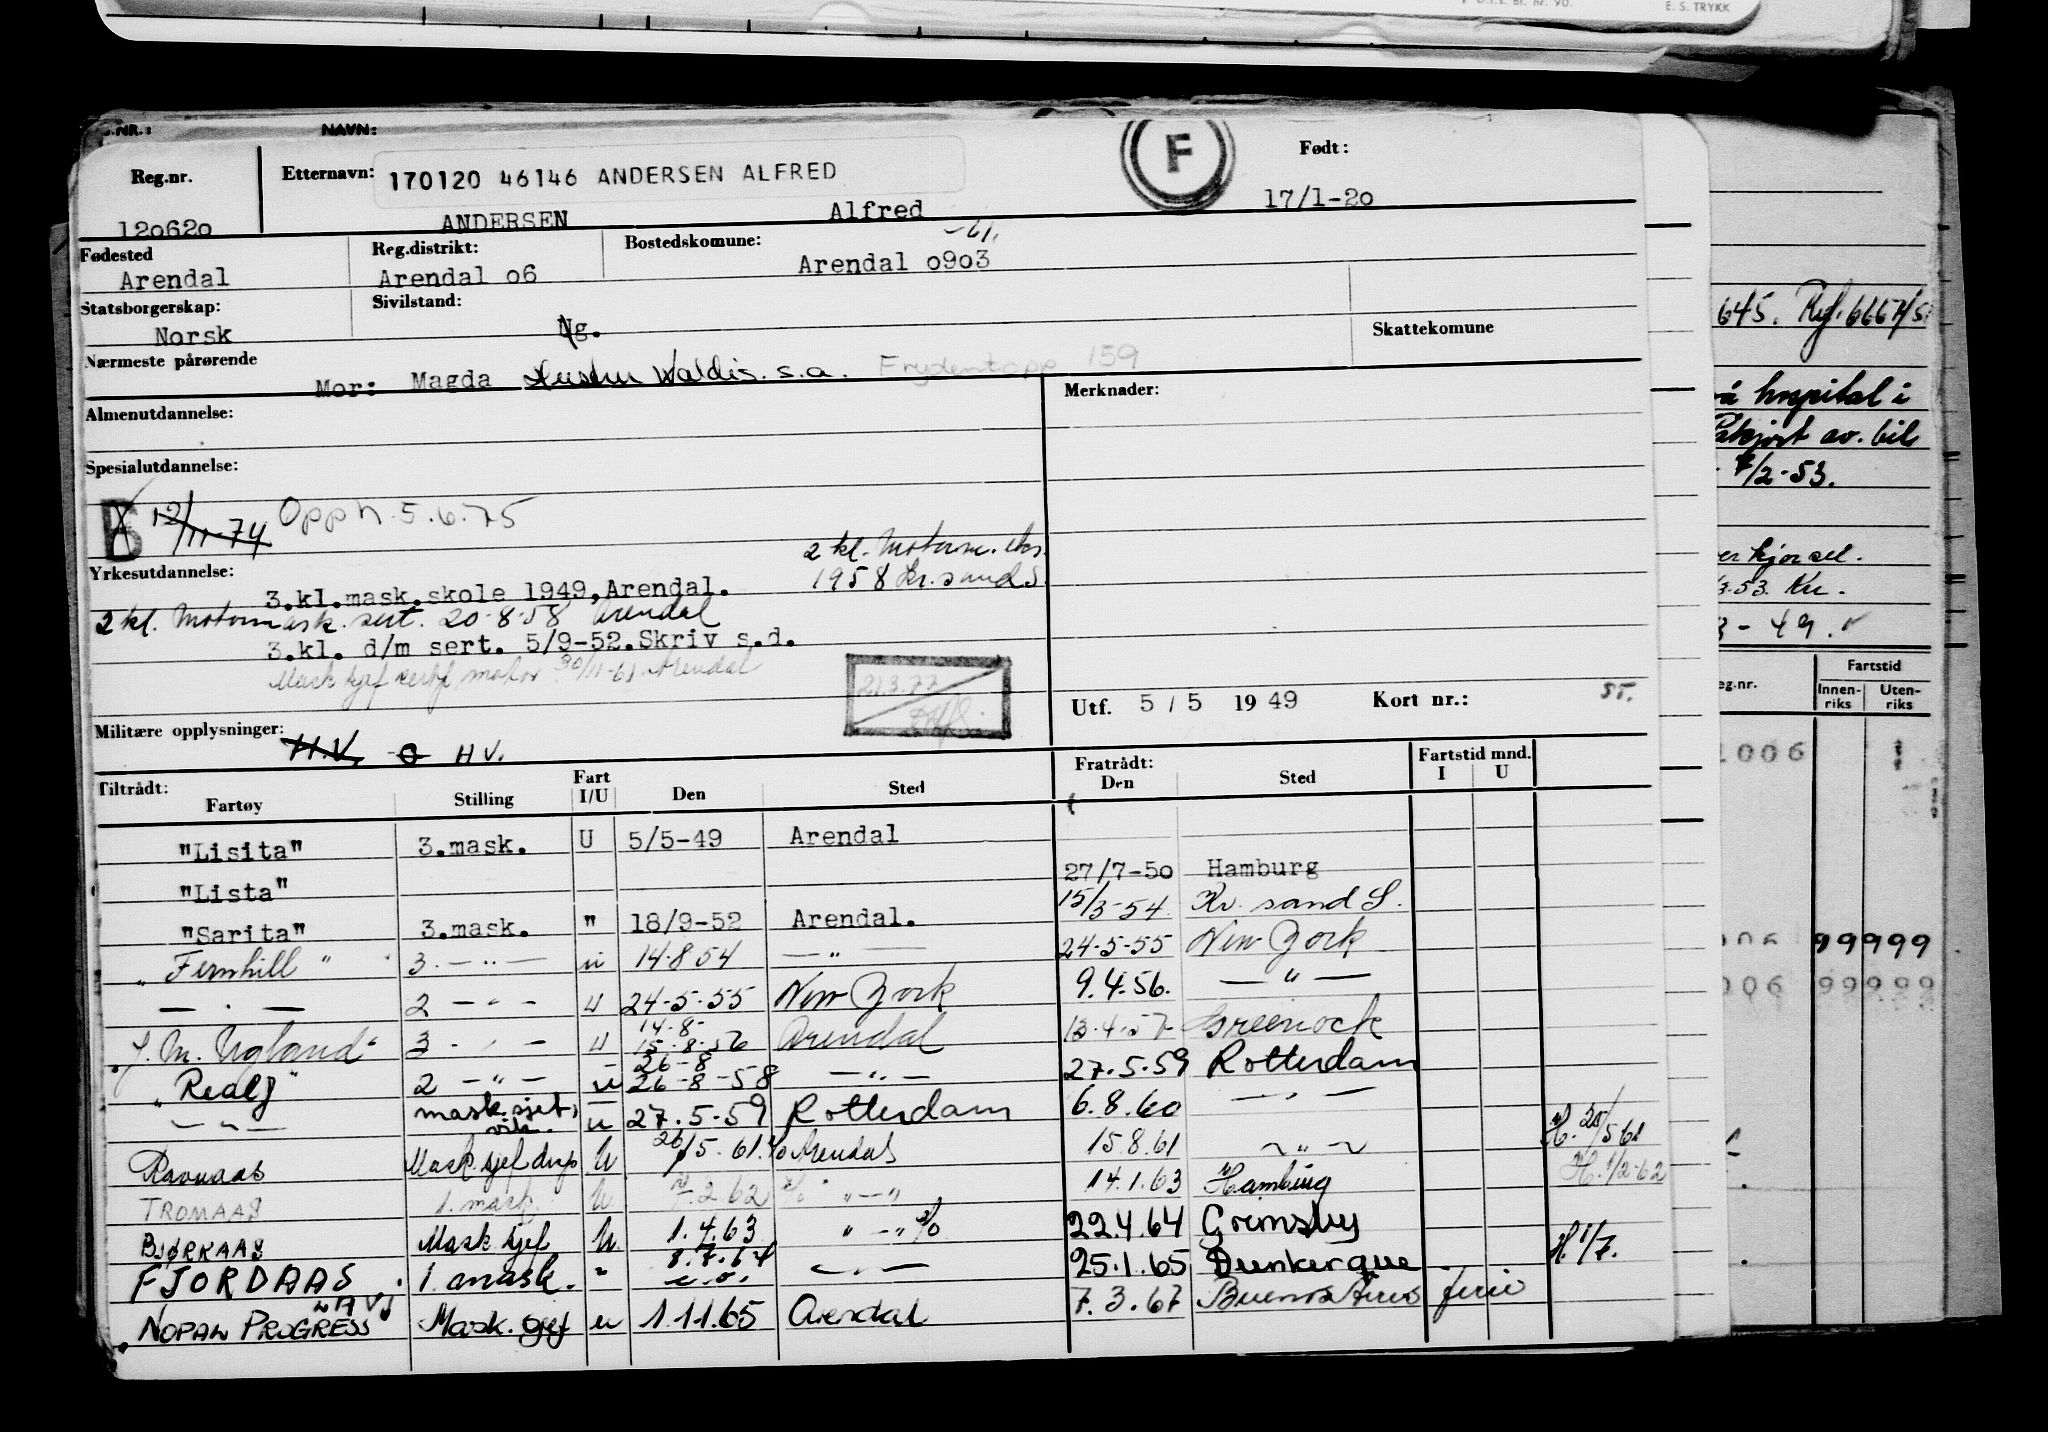 E. S. TRYKK
NAVN:
Reg.nr.
Etternavn:
170120 46146 ANDERSEN ALFRED
F
Født:
12o62o
ANDERSEN
Alfred
17/1-2o
Fødested
Reg.distrikt:
Bostedskomune:
-61.
Arendal
Arendal o6
Arendal o9o3
Statsborgerskap:
Sivilstand:
Norsk
g.
Skattekomune
Nærmeste pårørende
Mor: Magda Hustru Waldis. s.a. Frydentopp 159
Almenutdannelse:
Merknader:
Spesialutdannelse:
B 12/11-74 Opph. 5.6.75
Yrkesutdannelse:
2 kl. Motorm.
1958 Kr.sand S.
3.kl.mask.skole 1949,Arendal.
2 kl. Motormask. sert. 20-8-58 Arendal
3.kl. d/m sert. 5/9-52.Skriv s.d.
Mask sjef sert motor 30/11-61 Arendal
21.3.77
Utf. 5 / 5 19 49 Kort nr.:
Militære opplysninger:
H.V. HV.
Tiltrådt:
Fartøy Stilling Fart I/U Den Sted
Fratrådt:
Den Sted
Fartstid mnd.
I U
"Lisita" 3.mask. U 5/5-49 Arendal
27/7-5o Hamburg
"Lista"
15/3-54 Kr. sand S.
"Sarita" 3.mask. " 18/9-52 Arendal.
24-5-55 New York
"Fernhill" 3 - " - u 14.8.54 - " -
9.4.56. - " -
- " - 2 - " - u 24-5-55 New York
13.4.57 Greenock
"J. M. Ugland" 3 - " - u 14-8- 15-8-56 Arendal
27.5.59 Rotterdam
"Realf" 2 - " - u 26-8 26-8-58 - " -
6.8.60 - " -
- " - mask.sjef vik. u 27.5-59 Rotterdam
15.8.61 - " - H. 25/5 61
Ravnaas Mask. sjef disp U 26/5.61. Arendal
14.1.63 Hamburg H. 1/2-62
TROMAAS 1. mask. U 2.62 " - "
22.4.64 Grimsby
BJØRKAAS Mask sjef U. 1.4.63 " - "
25.1.65 Dunkerque H. 1/7.
FJORDAAS 1. mask. " 8.7.64 - " -
7.3.67 Buenos Aires ferie
"NOPAL PROGRESS" Mask. sjef u 1.11.65 Arendal
645. Ref. 6667/5
på hospital i
Påkjørt av. bil
/2-53.
53. Kr.
- 49.
Fartstid
eg.nr. Innen-riks Uten-riks
006
99999
006 99999